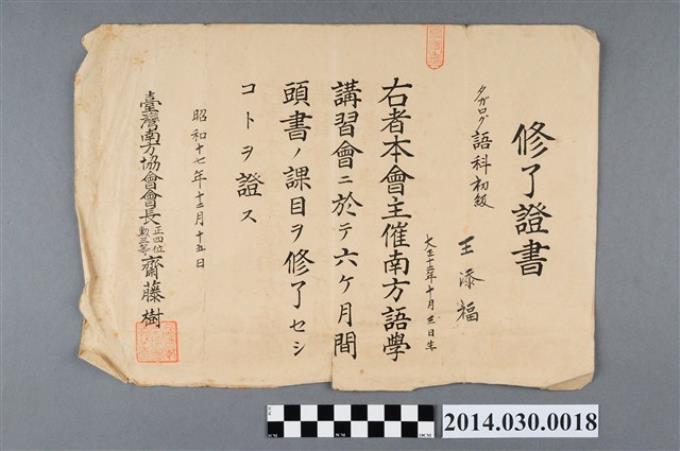 修了證書
タガログ語科初級
王添福
右者本會主催南方語學
講習會ニ於テ六ヶ月間
頭書ノ課目ヲ修了セシ
コトヲ證ス
昭和十七年十二月十五日
臺灣南方協會會長正四位勳三等齋藤樹
2014.030.0018